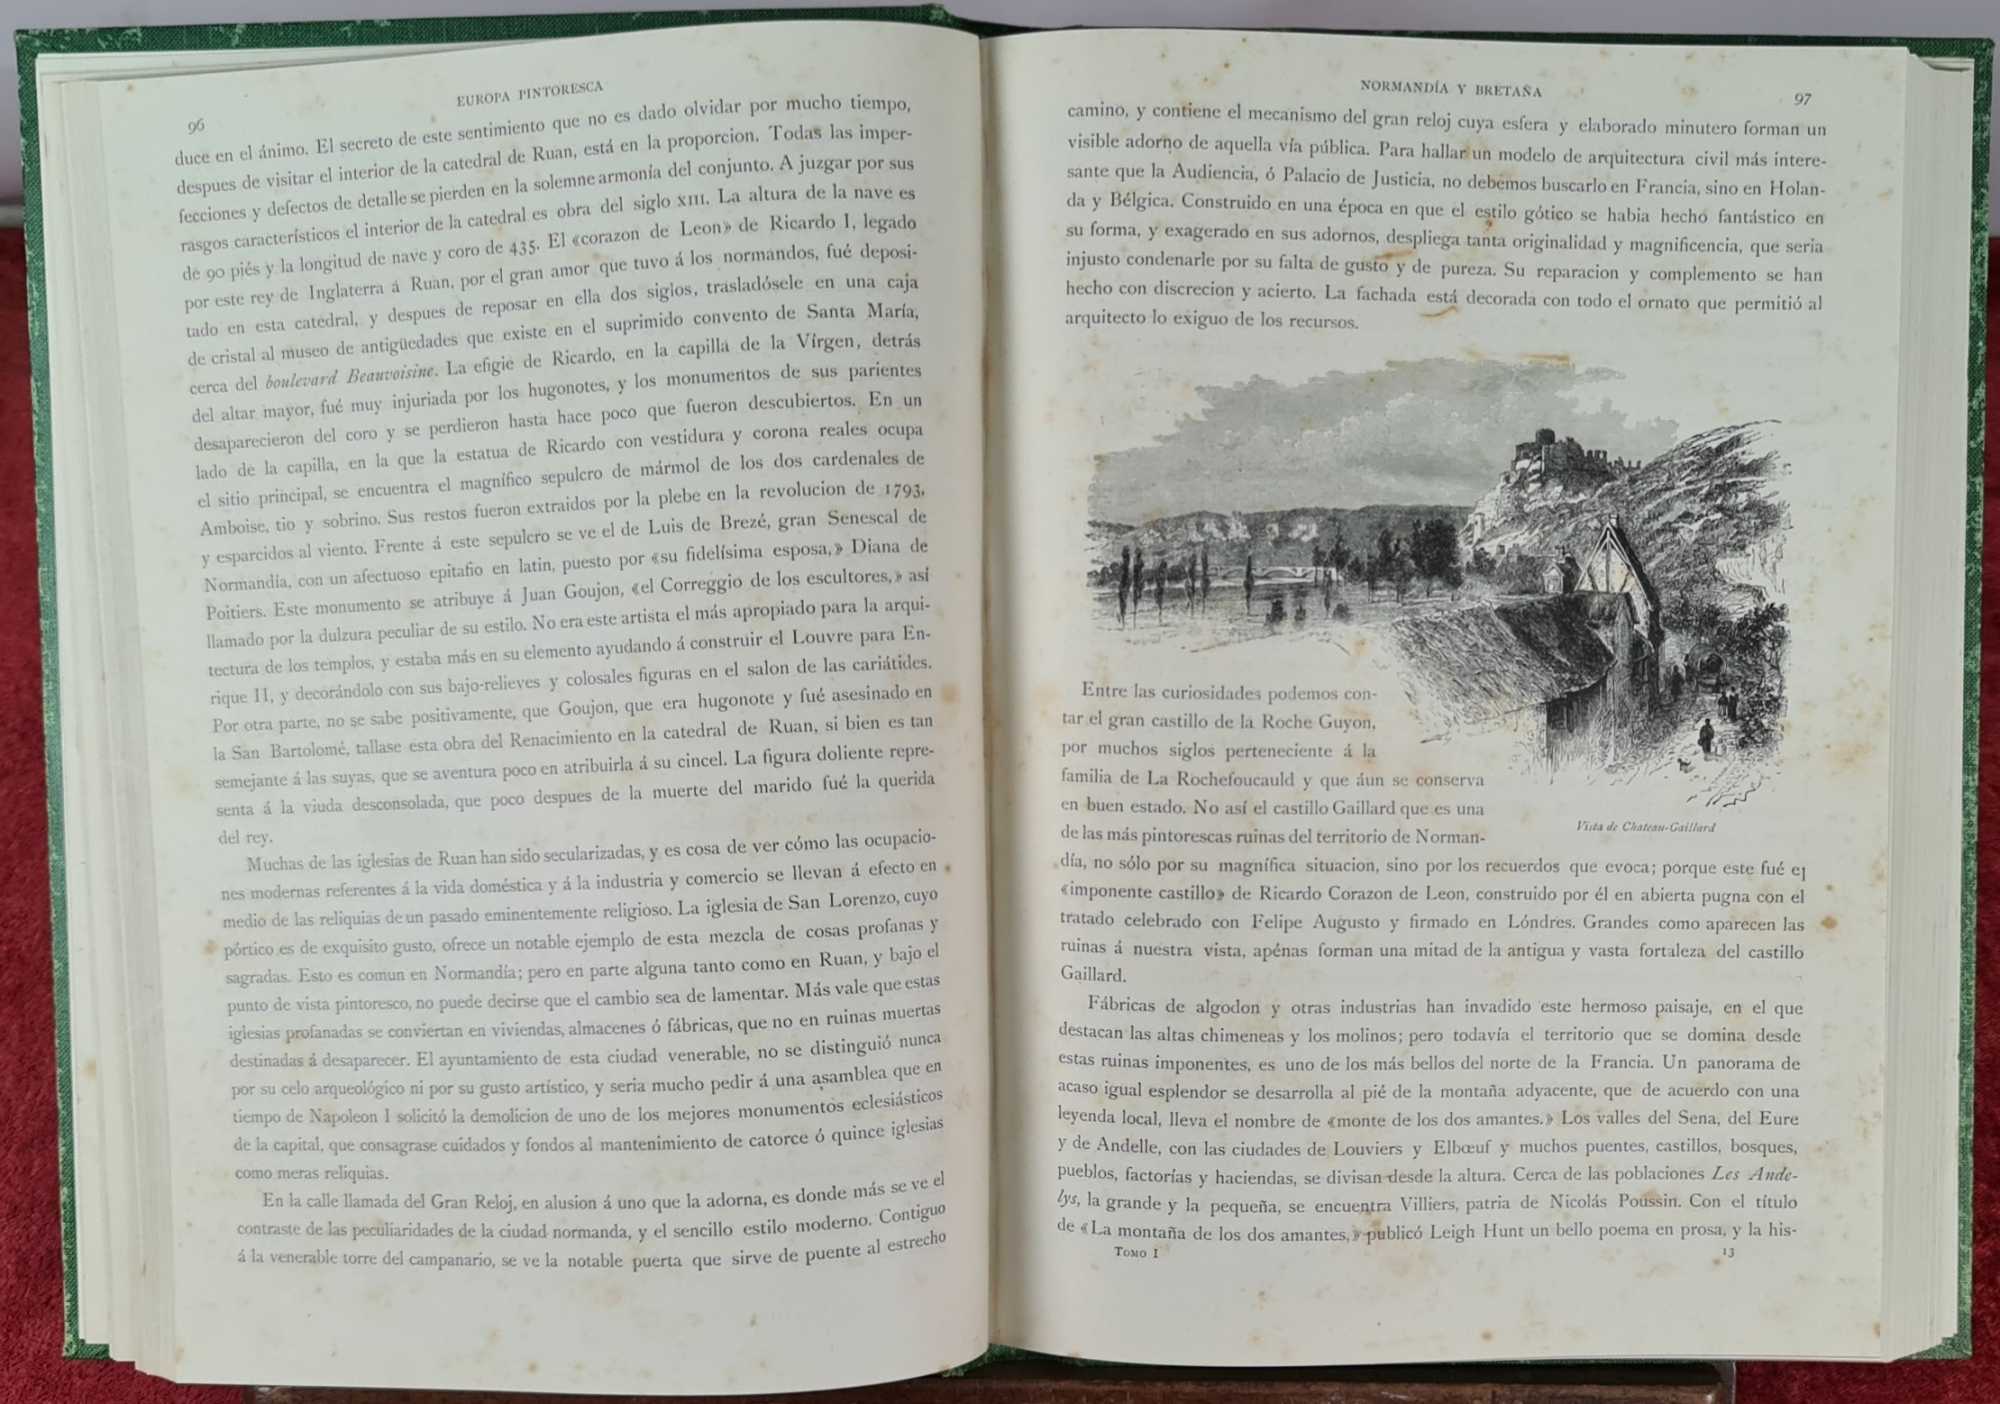 96
EUROPA PINTORESCA
duce en el ánimo. El secreto de este sentimiento que no es dado olvidar por mucho tiempo,
despues de visitar el interior de la catedral de Ruan, está en la proporcion. Todas las imper-
fecciones y defectos de detalle se pierden en la solemne armonía del conjunto. A juzgar por sus
rasgos característicos el interior de la catedral es obra del siglo XIII. La altura de la nave es
de 90 piés y la longitud de nave y coro de 435. El «corazon de Leon» de Ricardo I, legado
por este rey de Inglaterra á Ruan, por el gran amor que tuvo á los normandos, fué deposi-
tado en esta catedral, y despues de reposar en ella dos siglos, trasladósele en una caja
de cristal al museo de antigüedades que existe en el suprimido convento de Santa María,
cerca del boulevard Beauvoisine. La efigie de Ricardo, en la capilla de la Vírgen, detrás
del altar mayor, fué muy injuriada por los hugonotes, y los monumentos de sus parientes
desaparecieron del coro y se perdieron hasta hace poco que fueron descubiertos. En un
lado de la capilla, en la que la estatua de Ricardo con vestidura y corona reales ocupa
el sitio principal, se encuentra el magnífico sepulcro de mármol de los dos cardenales de
Amboise, tio y sobrino. Sus restos fueron extraidos por la plebe en la revolucion de 1793,
y esparcidos al viento. Frente á este sepulcro se ve el de Luis de Brezé, gran Senescal de
Normandía, con un afectuoso epitafio en latin, puesto por «su fidelísima esposa,» Diana de
Poitiers. Este monumento se atribuye á Juan Goujon, «el Correggio de los escultores,» así
llamado por la dulzura peculiar de su estilo. No era este artista el más apropiado para la arqui-
tectura de los templos, y estaba más en su elemento ayudando á construir el Louvre para En-
rique II, y decorándolo con sus bajo-relieves y colosales figuras en el salon de las cariátides.
Por otra parte, no se sabe positivamente, que Goujon, que era hugonote y fué asesinado en
la San Bartolomé, tallase esta obra del Renacimiento en la catedral de Ruan, si bien es tan
semejante á las suyas, que se aventura poco en atribuirla á su cincel. La figura doliente repre-
senta á la viuda desconsolada, que poco despues de la muerte del marido fué la querida
del rey.
Muchas de las iglesias de Ruan han sido secularizadas, y es cosa de ver cómo las ocupacio-
nes modernas referentes á la vida doméstica y á la industria y comercio se llevan á efecto en
medio de las reliquias de un pasado eminentemente religioso. La iglesia de San Lorenzo, cuyo
pórtico es de exquisito gusto, ofrece un notable ejemplo de esta mezcla de cosas profanas y
sagradas. Esto es comun en Normandía; pero en parte alguna tanto como en Ruan, y bajo el
punto de vista pintoresco, no puede decirse que el cambio sea de lamentar. Más vale que estas
iglesias profanadas se conviertan en viviendas, almacenes ó fábricas, que no en ruinas muertas
destinadas á desaparecer. El ayuntamiento de esta ciudad venerable, no se distinguió nunca
por su celo arqueológico ni por su gusto artístico, y seria mucho pedir á una asamblea que en
tiempo de Napoleon I solicitó la demolicion de uno de los mejores monumentos eclesiásticos
de la capital, que consagrase cuidados y fondos al mantenimiento de catorce ó quince iglesias
como meras reliquias.
En la calle llamada del Gran Reloj, en alusion á uno que la adorna, es donde más se ve el
contraste de las peculiaridades de la ciudad normanda, y el sencillo estilo moderno. Contiguo
á la venerable torre del campanario, se ve la notable puerta que sirve de puente al estrecho
NORMANDÍA Y BRETAÑA
97
camino, y contiene el mecanismo del gran reloj cuya esfera y elaborado minutero forman un
visible adorno de aquella vía pública. Para hallar un modelo de arquitectura civil más intere-
sante que la Audiencia, ó Palacio de Justicia, no debemos buscarlo en Francia, sino en Holan-
da y Bélgica. Construido en una época en que el estilo gótico se habia hecho fantástico en
su forma, y exagerado en sus adornos, despliega tanta originalidad y magnificencia, que seria
injusto condenarle por su falta de gusto y de pureza. Su reparacion y complemento se han
hecho con discrecion y acierto. La fachada está decorada con todo el ornato que permitió al
arquitecto lo exiguo de los recursos.
Entre las curiosidades podemos con-
tar el gran castillo de la Roche Guyon,
por muchos siglos perteneciente á la
familia de La Rochefoucauld y que áun se conserva
en buen estado. No así el castillo Gaillard que es una
de las más pintorescas ruinas del territorio de Norman-
Vista de Chateau-Gaillard
día, no sólo por su magnífica situacion, sino por los recuerdos que evoca; porque este fué el
«imponente castillo» de Ricardo Corazon de Leon, construido por él en abierta pugna con el
tratado celebrado con Felipe Augusto y firmado en Lóndres. Grandes como aparecen las
ruinas á nuestra vista, apénas forman una mitad de la antigua y vasta fortaleza del castillo
Gaillard.
Fábricas de algodon y otras industrias han invadido este hermoso paisaje, en el que
destacan las altas chimeneas y los molinos; pero todavía el territorio que se domina desde
estas ruinas imponentes, es uno de los más bellos del norte de la Francia. Un panorama de
acaso igual esplendor se desarrolla al pié de la montaña adyacente, que de acuerdo con una
leyenda local, lleva el nombre de «monte de los dos amantes.» Los valles del Sena, del Eure
y de Andelle, con las ciudades de Louviers y Elbœuf y muchos puentes, castillos, bosques,
pueblos, factorías y haciendas, se divisan desde la altura. Cerca de las poblaciones Les Ande-
lys, la grande y la pequeña, se encuentra Villiers, patria de Nicolás Poussin. Con el título
de «La montaña de los dos amantes,» publicó Leigh Hunt un bello poema en prosa, y la his-
TOMO I
13